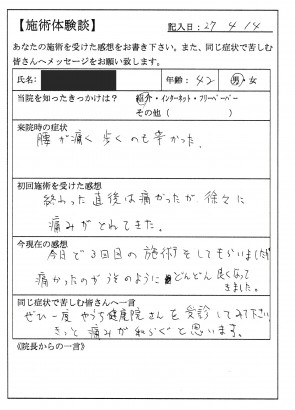 【施術体験談】 記入日：27 4 14
あなたの施術を受けた感想をお書き下さい。また、同じ症状で苦しむ
皆さんへメッセージをお願い致します。
氏名： 年齢：42 男・女
当院を知ったきっかけは？ 紹介・インターネット・フリーペーパー
その他（ ）
来院時の症状
腰が痛く歩くのも辛かった。
初回施術を受けた感想
終わった直後は痛かったが徐々に
痛みがとれてきた。
今現在の感想
今日で3回目の施術をしてもらいました
痛かったのがうそのようにどんどん良くなって
きました。
同じ症状で苦しむ皆さんへ一言
ぜひ一度やうち健康院さんを受診してみて下さい。
きっと痛みが和らぐと思います。
《院長からの一言》